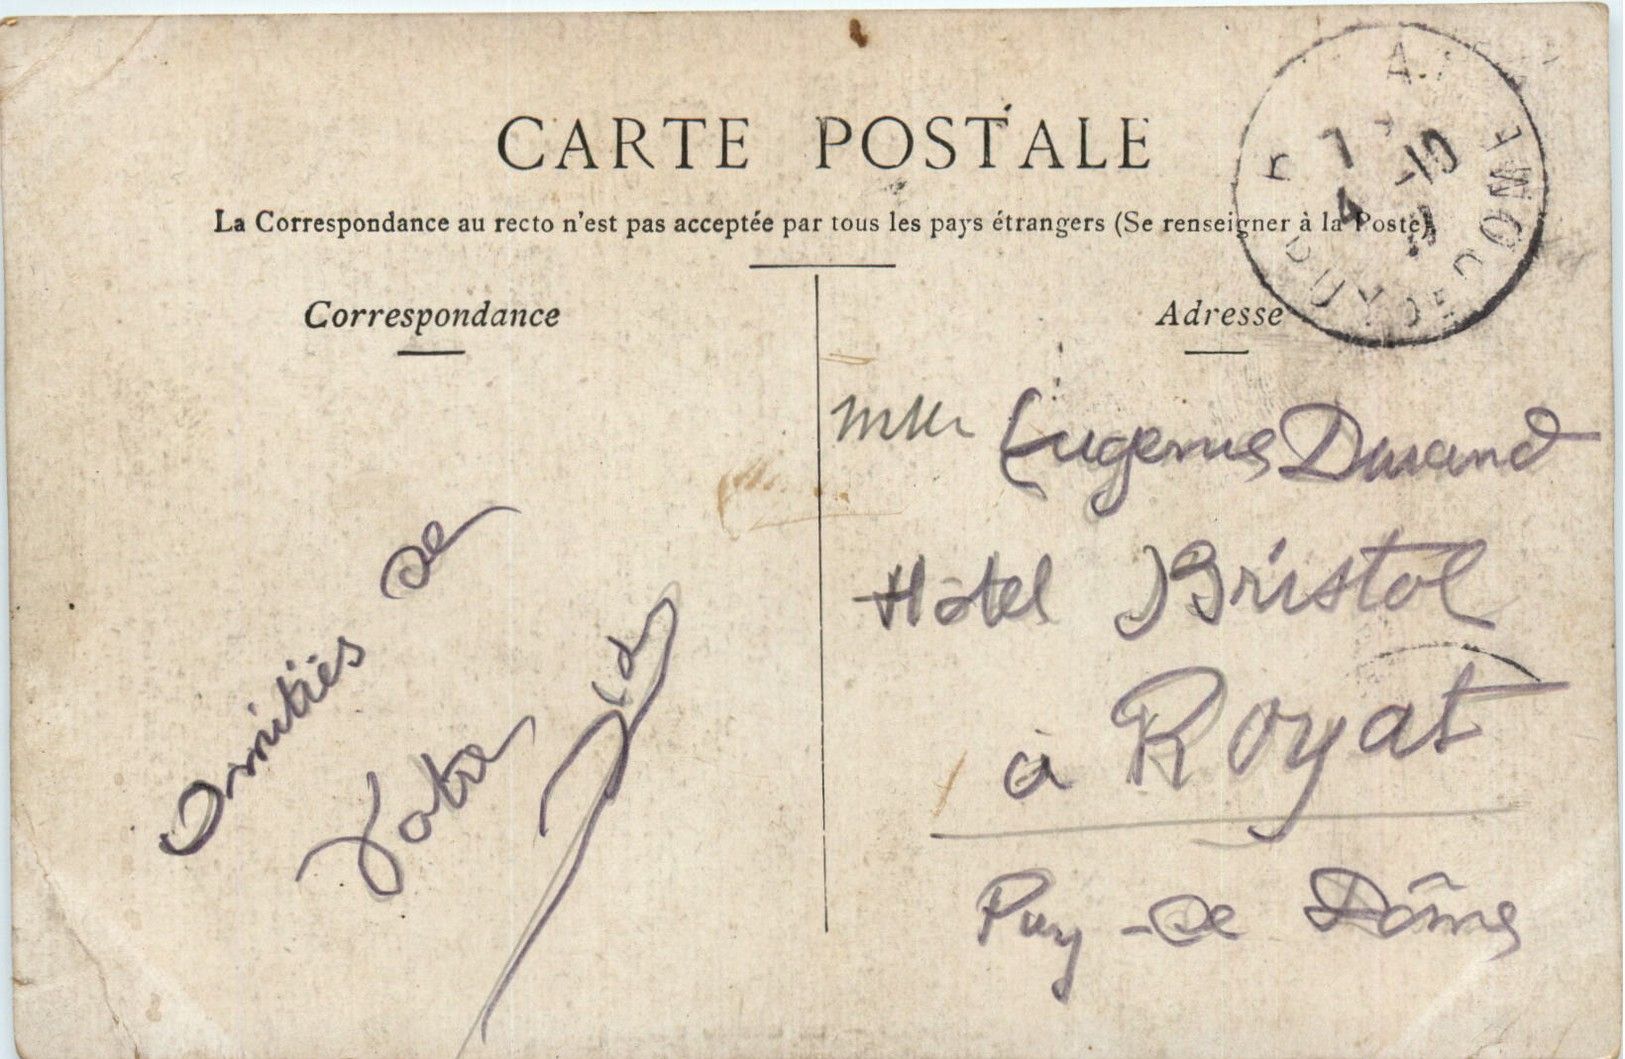 CARTE POSTALE
La Correspondance au recto n'est pas acceptée par tous les pays étrangers (Se renseigner à la Poste)
Correspondance
Adresse
PUY DE DOME
Mlle Eugenie Durand
Hôtel Bristol
à Royat
Puy-de Dôme
Amitiés de